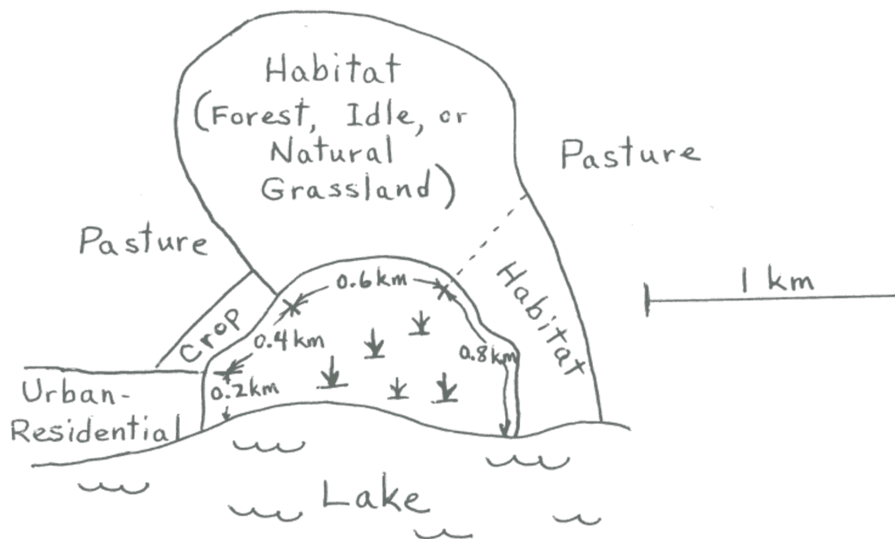 Habitat
(Forest, Idle, or
Natural
Grassland)
Pasture
Pasture
Habitat
1 km
0.6 km
Crop
0.4 km
0.8 km
0.2 km
Urban-
Residential
Lake